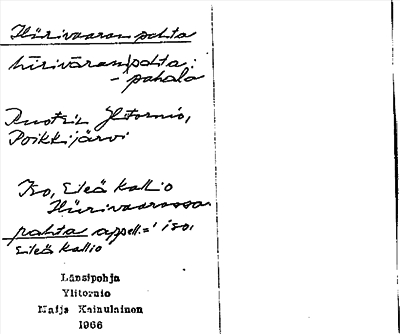 Hiirivaaran pahta
hīrivāram|pahta :
– pahala
Ruotsin Ylitornio,
Poikkijärvi
Iso, sileä kallio
Hiirivaarassa
pahta appell. = ' iso,
sileä kallio '
Länsipohja
Ylitornio
Maija Kainulainen
1966